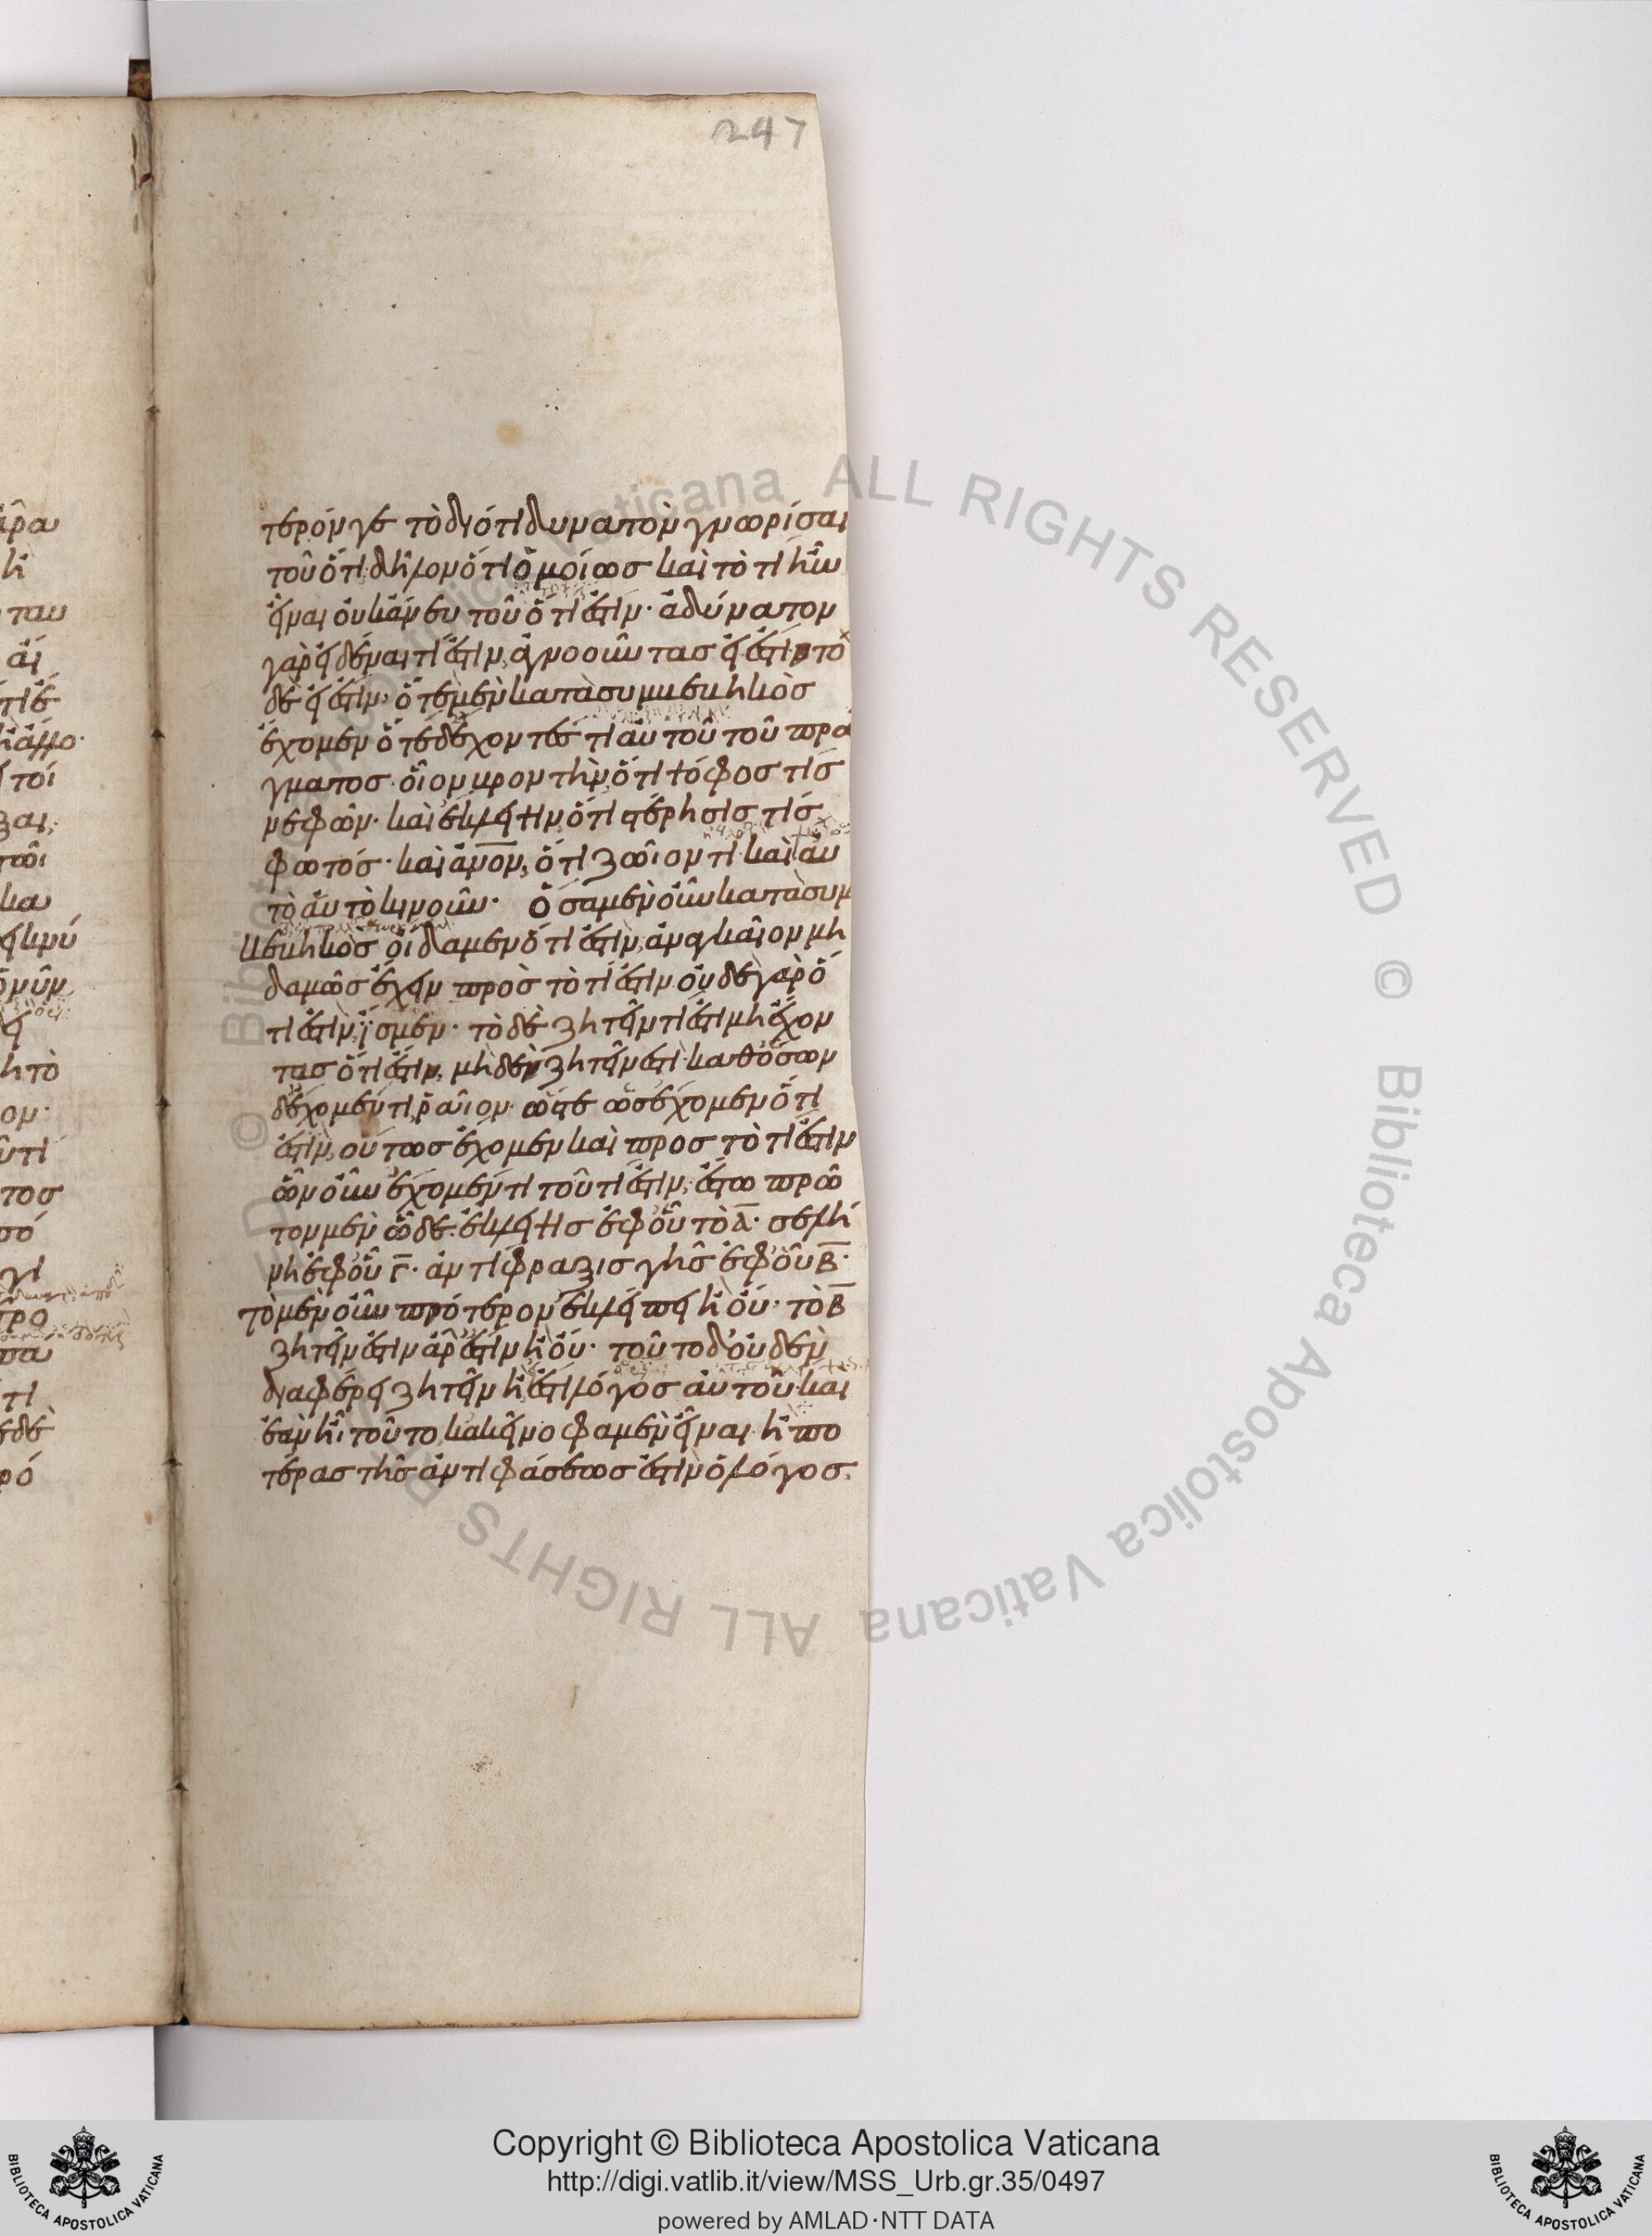 247
τερόν γε τὸ διότι δυνατὸν γνωρίσαι
τοῦ ὅτι δῆλον ὅτι ὁμοίως καὶ τὸ τί ἦν
εἶναι οὐκ ἄνευ τοῦ ὅτι ἐστίν· ἀδύνατον
γὰρ εἰδέναι τί ἐστιν, ἀγνοοῦντας εἰ ἔστι· τὸ
δὲ εἰ ἔστιν· ὁτὲ μὲν κατὰ συμβεβηκὸς
ἔχομεν ὁτὲ δ' ἔχοντές τι αὐτοῦ τοῦ πρά
γματος· οἷον βροντὴν, ὅτι ψόφος τίς
νεφῶν· καὶ ἔκλειψιν, ὅτι στέρησις τίς
φωτός· καὶ ἄνον, ὅτι ζῶιόν τι καὶ αὐ
τὸ αὐτὸ κινοῦν· ὅσα μὲν οὖν κατὰ συμ
βεβηκὸς οἴδαμεν ὅτι ἔστιν, ἀναγκαῖον μη
δαμῶς ἔχειν πρὸς τὸ τί ἐστιν οὐδὲ γὰρ ὅ
τι ἔστιν, ἴσμεν· τὸ δὲ ζητεῖν τί ἐστι μὴ ἔχον
τας ὅτι ἔστιν, μηδὲν ζητεῖν ἐστὶ· καθ' ὅσων
δ' ἔχομέν τι, ῥᾷιον· ὥστε ὡς ἔχομεν ὅτι
ἔστιν, οὕτως ἔχομεν καὶ προς τὸ τί ἐστιν
ὧν οὖν ἔχομέν τι τοῦ τί ἐστιν, ἔστω πρῶ
τον μὲν ὧδε· ἔκλειψις ἐφ' οὗ τὸ Α· σελή
νη ἐφ' οὗ Γ· ἀντίφραξις γῆς ἐφ' οὗ Β·
τὸ μὲν οὖν πρότερον ἐκλείπει ἢ οὔ· τὸ Β
ζητεῖν ἐστιν ἆρ' ἔστιν ἢ οὔ· τοῦτο δ' οὐδὲν
διαφέρει ζητεῖν ἢ εἰ ἔστι λόγος αὐτοῦ· καὶ
ἐὰν ἦι τοῦτο, κακεῖνο φαμὲν εἶναι· ἢ πο
τέρας τῆς ἀντιφάσεως ἐστὶν ὁ λόγος,
Copyright © Biblioteca Apostolica Vaticana
http://digi.vatlib.it/view/MSS_Urb.gr.35/0497
powered by AMLAD·NTT DATA
BIBLIOTECA APOSTOLICA VATICANA
BIBLIOTECA APOSTOLICA VATICANA
© Biblioteca Apostolica Vaticana ALL RIGHTS RESERVED © Biblioteca Apostolica Vaticana ALL RIGHTS RESERVED